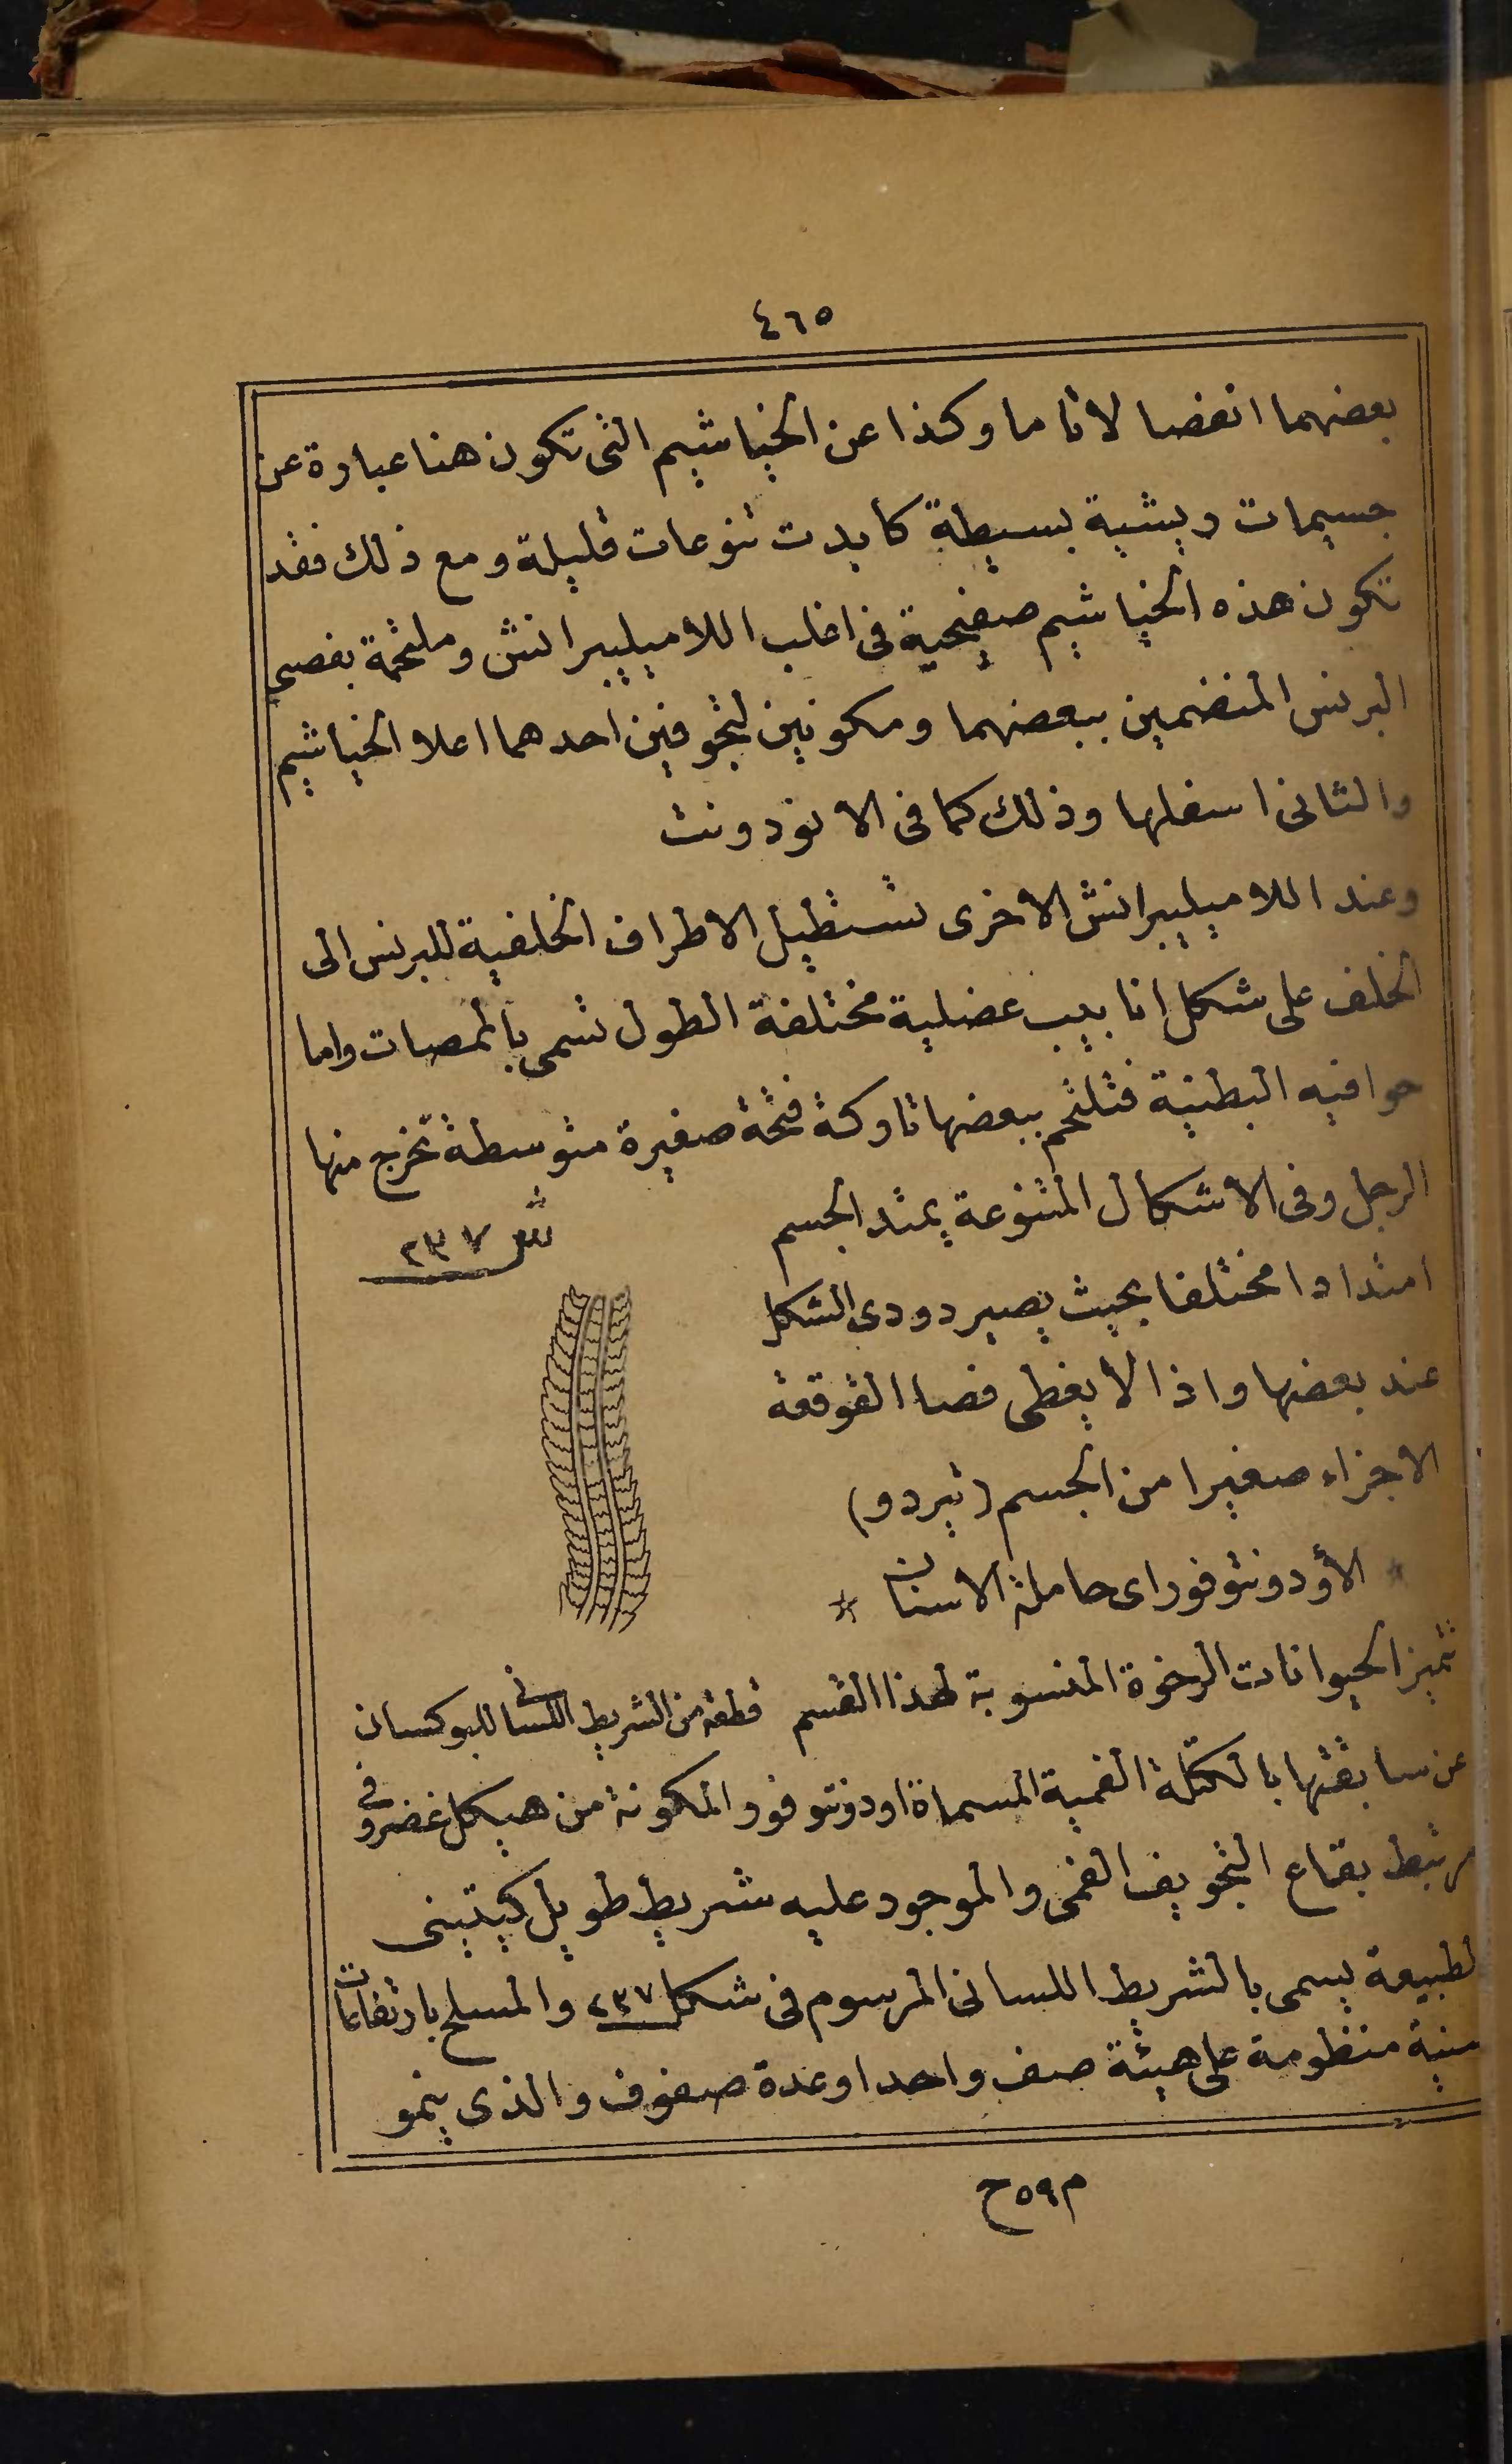 ٤٦٥
بعضهما انفصالا تاما وكذا عن الخياشيم التى تكون هنا عبارة عن
جسيمات ريشية بسيطة كابدت تنوعات قليلة ومع ذلك فقد
تكون هذه الخياشيم صفيحية فى اغلب اللاميليبرانش وملتحمة بفصى
البرنس المنضمين ببعضهما ومكونين لتجوفين احدهما اعلا الخياشيم
والثانى اسفلها وذلك كما فى الانودونت
وعند اللاميليبرانش الاخرى تستطيل الاطراف الخلفية للبرنس الى
الخلف على شكل انابيب عضلية مختلفة الطول تسمى بالممصات واما
حوافيه البطنية فتلتحم ببعضها تاركة فتحة صغيرة متوسطة تخرج منها
الرجل وفى الاشكال المتنوعة يمتد الجسم
امتدادا مختلفا بحيث يصير دودى الشكل
عند بعضها واذا لا يغطى فصا القوقعة
الاجزاء صغيرا من الجسم (تيردو)
* الأودونتوفور اى حاملة الاسنان *
تتميز الحيوانات الرخوة المنسوبة لهذا القسم
عن سابقتها بالكتلة الفمية المسماة اودونتوفور والمكونة من هيكل غضروفى
مرتبط بقاع التجويف الفمى والموجود عليه شريط طويل كيتينى
لطبيعة يسمى بالشريط اللسانى المرسوم فى شكل ٢٣٧ والمسلح بارتفاعات
سنية منظومة على هيئة صف واحد او عدة صفوف والذى ينمو
ش ٢٣٧
قطعة من الشريط اللسانى للبوكسان
م ٥٩ ح